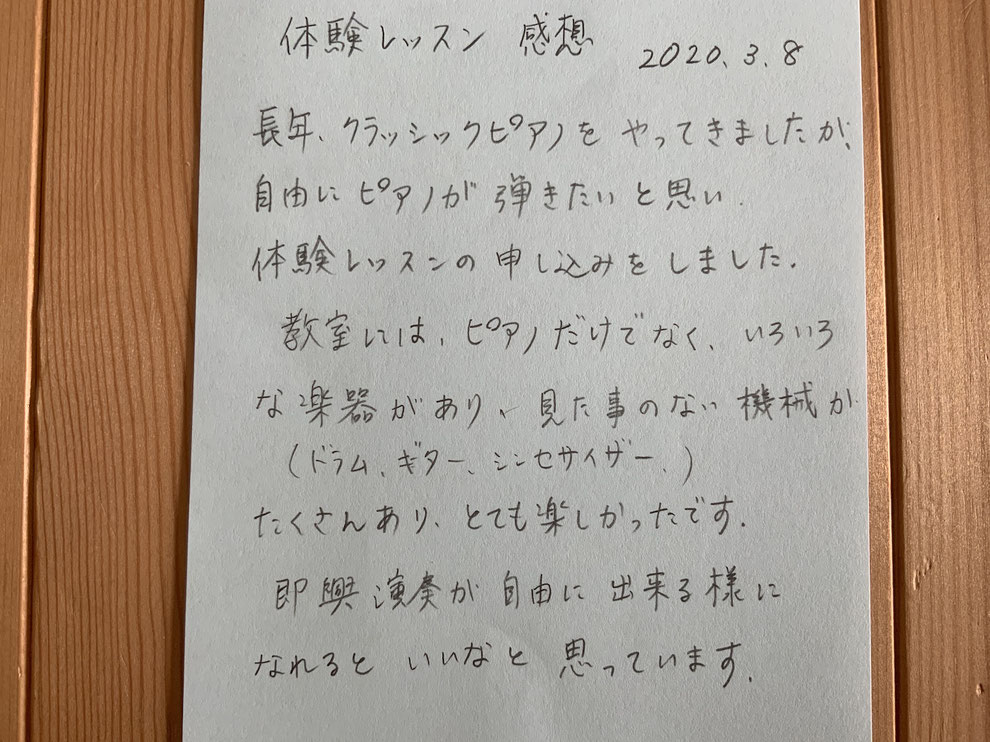 体験レッスン 感想 2020.3.8
長年、クラッシックピアノをやってきましたが、
自由にピアノが弾きたいと思い、
体験レッスンの申し込みをしました。
教室には、ピアノだけでなく、いろいろ
な楽器があり、見た事のない機械が
(ドラム、ギター、シンセサイザー、)
たくさんあり、とても楽しかったです。
即興演奏が自由に出来る様に
なれるといいなと思っています。